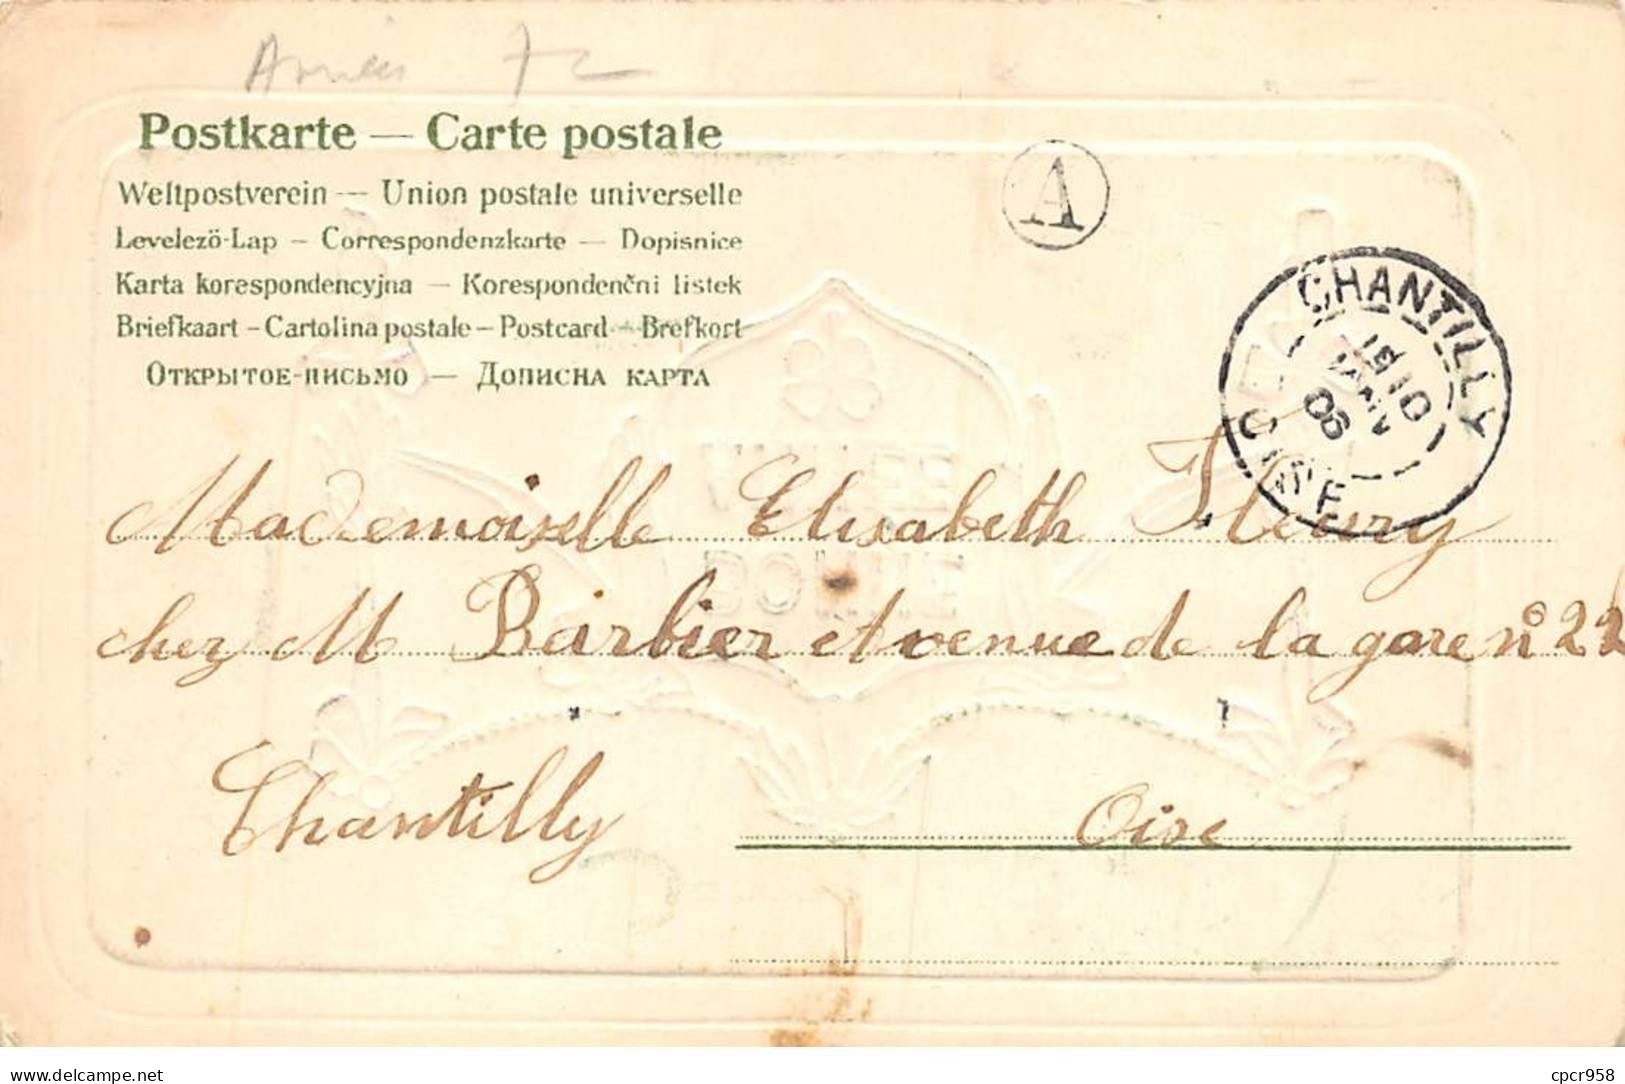 Années 7-
Postkarte — Carte postale
Weltpostverein — Union postale universelle
Levelezö-Lap — Correspondenzkarte — Dopisnice
Karta korespondencyjna — Korespondenčni listek
Briefkaart – Cartolina postale – Postcard – Brefkort
Открытое-письмо — Дописна карта
A
CHANTILLY
OISE
JANV
06
Mademoiselle Elisabeth Fleury
chez M Barbier Avenue de la gare n° 22
Chantilly Oise
ANNEE
BONNE
cpcr958